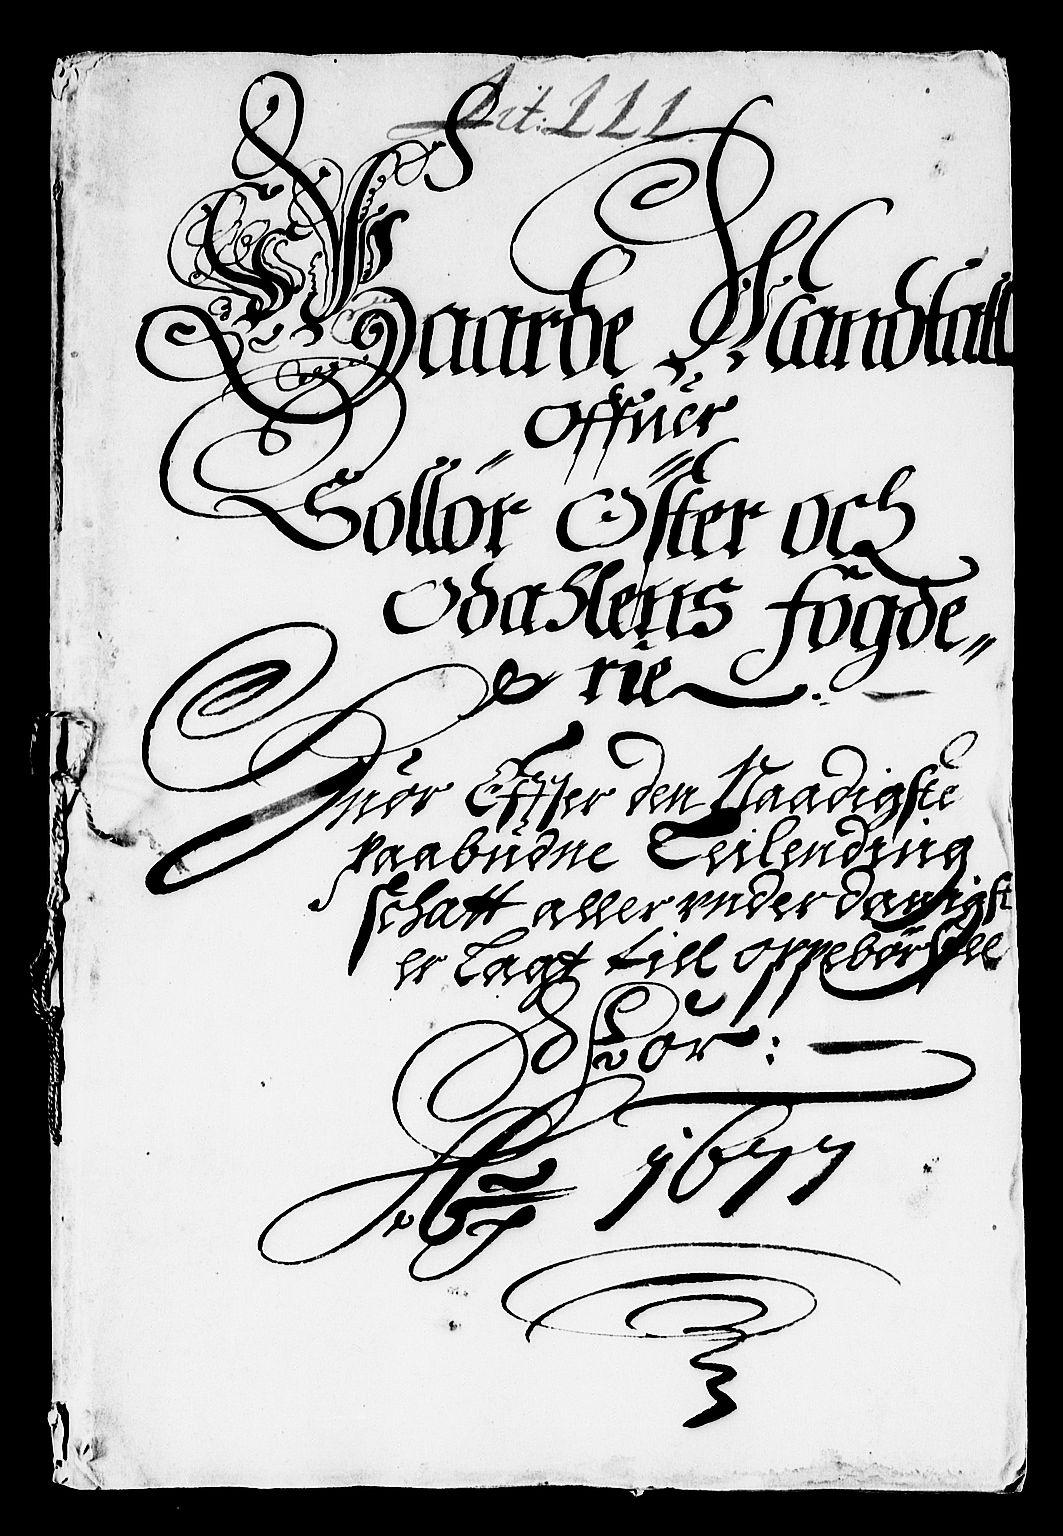 Lit: LLL
Gaarde Mandtall
offuer
Sollør Øster och
Odahlens fögde„
rie
huor Effter den Naadigste
paabudne Teilending
schatt aller vnder danigst
er lagt till oppebørsell
for: —
A° 1677